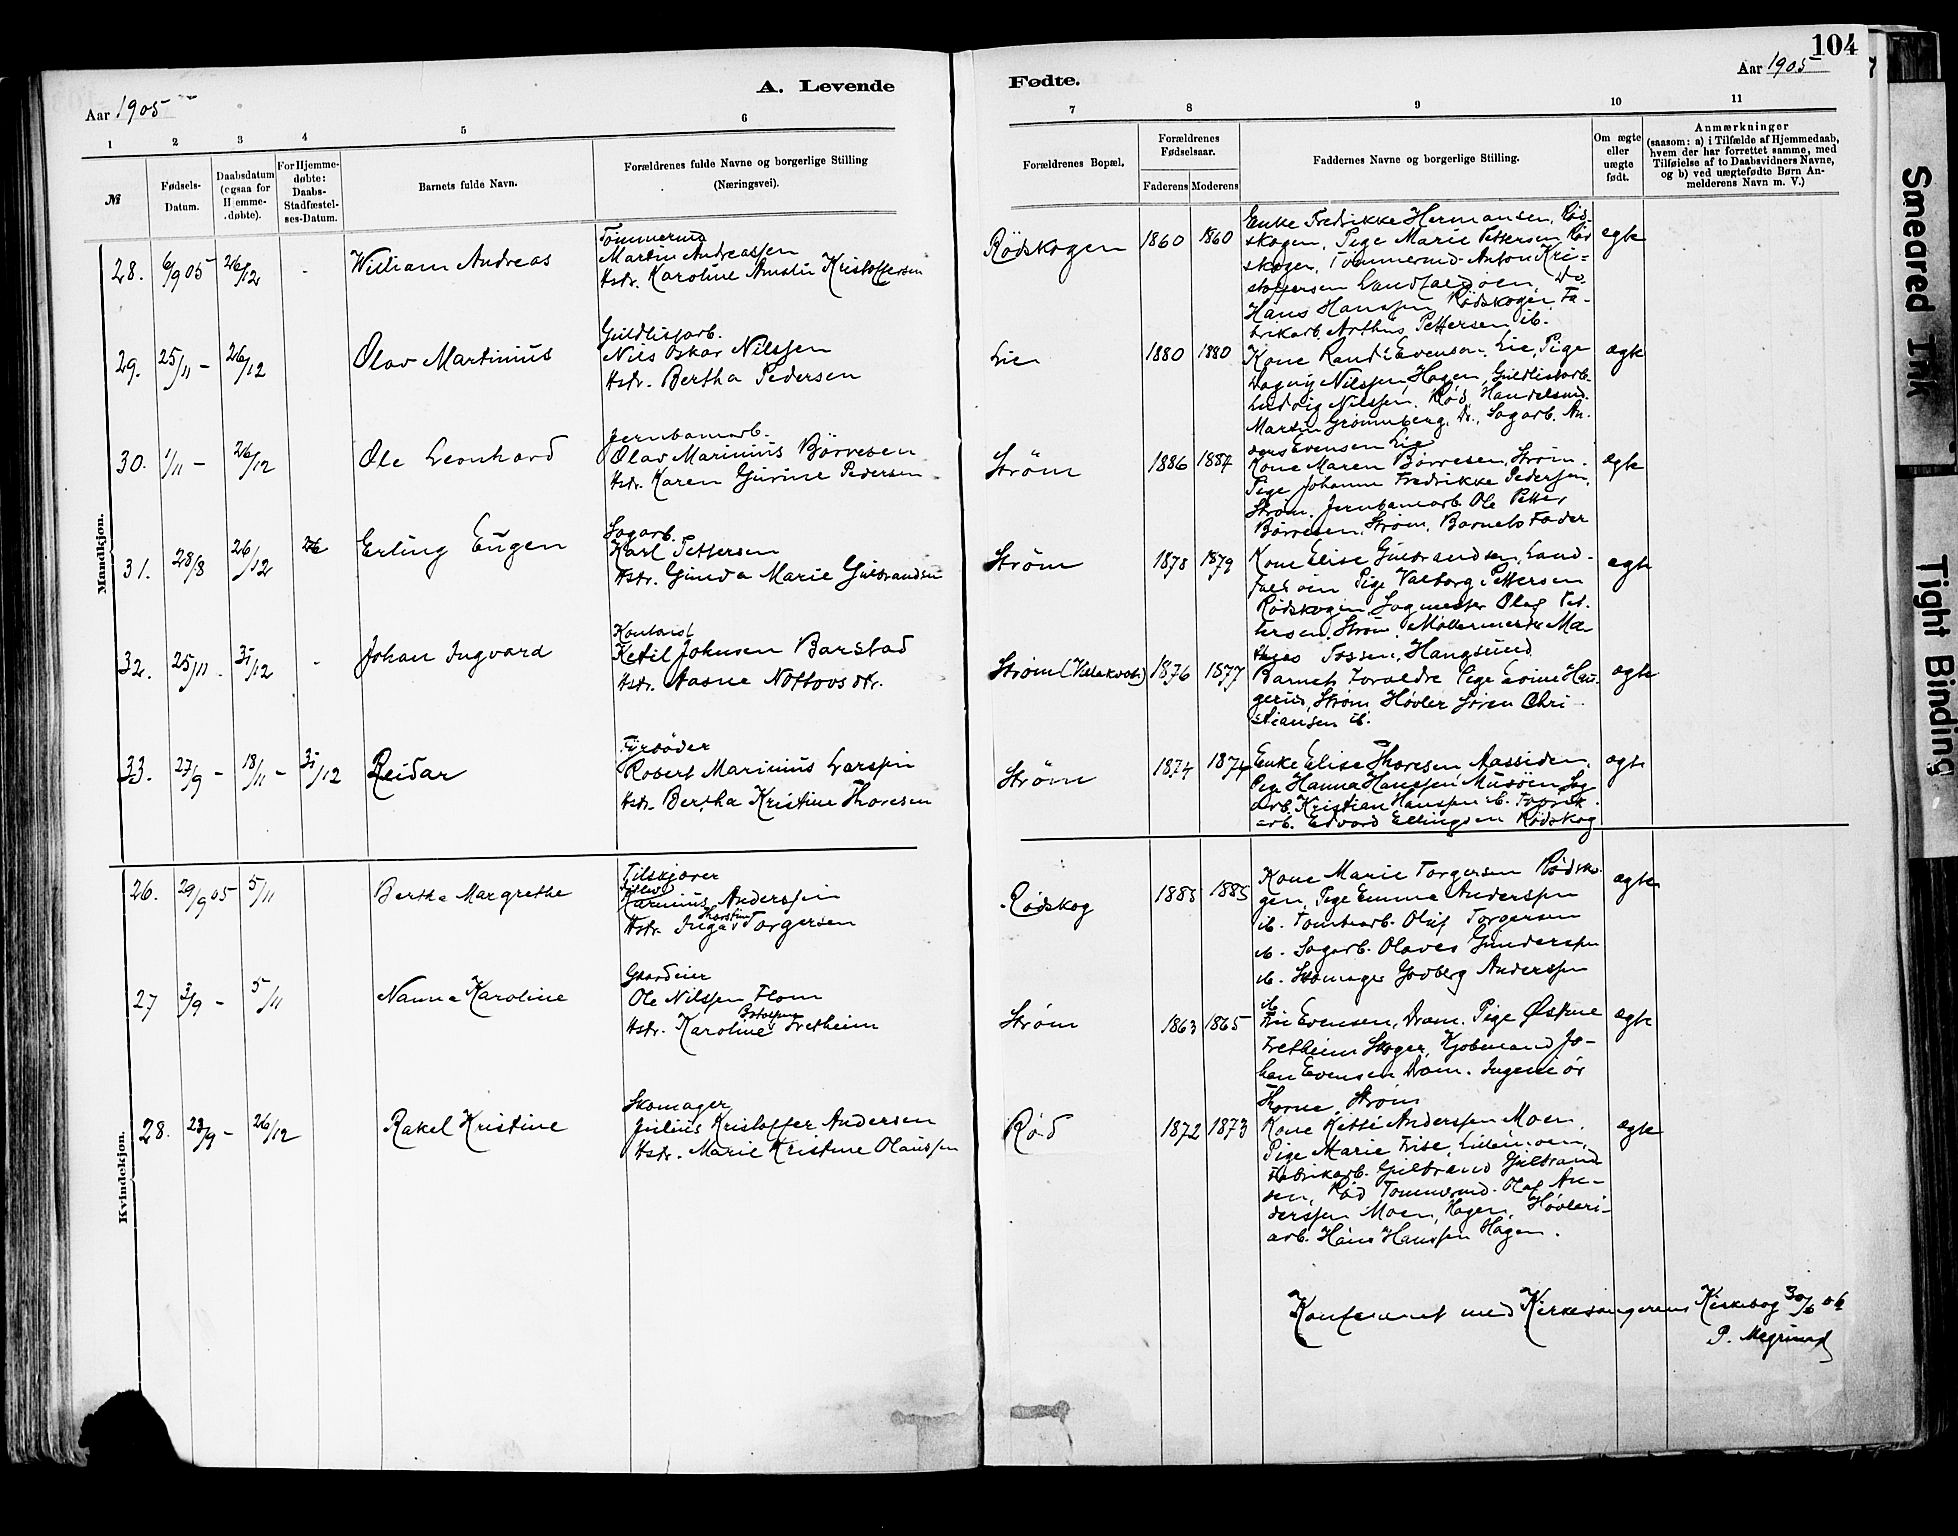 104
A. Levende
Fødte.
Aar 1905
Aar 1905
1 2 3 4 5 6
7 8 9 10 11
№
Fødsels-
Datum.
Daabsdatum
(ogsaa for
Hjemme-
døbte).
For Hjemme-
døbte:
Daabs-
Stadfæstel-
ses-Datum.
Barnets fulde Navn.
Forældrenes fulde Navne og borgerlige Stilling
(Næringsvei).
Forældrenes Bopæl.
Forældrenes
Fødselsaar.
Faderens Moderens
Faddernes Navne og borgerlige Stilling.
Om ægte
eller
uægte
født.
Anmærkninger
(saasom: a) i Tilfælde af Hjemmedaab,
hvem der har forrettet samme, med
Tilføielse af to Daabsvidners Navne,
og b) ved uægtefødte Børn An-
melderens Navn m. V.)
Mandkjøn.
28. 6/9 05 26/12 - William Andreas
Tømmermd
Martin Andreassen
Hstr. Karoline Amalie Kristoffersen
Rødskogen 1860 1860
Enke Fredrikke Hermansen, Rød-
skogen, Pige Marie Pettersen Rød
skogen, Tømmermd. Anton Kri-
stoffersen Landfaldøen, Do
Hans Hanssen Rødskogen, Fa-
brikarb. Arthur Pettersen ib.
egte
29. 25/11 - 26/12 Olav Martinius
Guldlistarb.
Nils Oskar Nilssen
Hstr. Bertha Pedersen
Lie 1880 1880
Kone Randi Evensen, Lie, Pige
Dagny Nilssen, Hagen, Guldlistarb.
Ludvig Nilssen, Rød, Handelsmd.
Martin Grønneberg, Dr., Sagarb. An-
ders Evensen Lie
egte
30. 1/11 - 26/12 Ole Leonhard
Jernbanearb.
Olav Marinius Børresen
Hstr. Karen Gurine Pedersen
Strøm 1886 1887
Kone Maren Børresen, Strøm.
Pige Johanne Fredrikke Pedersen,
Strøm, Jernbanearb. Ole Petter
Børresen, Strøm, Barnets Fader
egte
31. 28/8 26/12 Erling Eugen
Sagarb.
Karl Pettersen
Hstr. Ginda Marie Gulbrandsen
Strøm 1878 1879
Kone Elise Gulbrandsen, Land-
faldøen Pige Valborg Pettersen
Rødskogen, Sagmester Olaf Pet-
tersen, Strøm, Møllermester Ma-
Fossen, Hangsund
egte
32. 25/11. 31/12 - Johan Ingvard
Kontorist
Ketil Johnsen Barstad
Hstr. Aasne Nottovsdtr.
Strøm 1876 1877
Barnets Foreldre Pige Hau-
gerud, Strøm Høvler Søren Chri-
stiansen ib.
egte
33. 27/9 - 18/11 - 31/12 Reidar
Fyrbøder
Robert Marinius Larsen
Hstr. Bertha Kristine Thoresen
Strøm 1874 1874
Enke Elise Thoresen Aassiden,
Pige Hanna Hanssen Musøen Sag
arb. Kristian Hanssen ib. Fabrik-
arb. Edvard Ellingsen Rødskog
egte
Kvindekjøn.
26. 29/9 05 5/11 Bertha Margrethe
Tilskjærer
Marinius Anderssen
Hstr. Inga Thorstine Torgersen
Rødskog 1885 1885
Kone Marie Torgersen Rødsko-
gen, Pige Emma Anderssen
ib. Tomtearb. Oluf Torgersen
ib. Sagarb. Olaves Gunderssen
ib. Skomager Godberg Anderssen
ib.
egte
27 3/9 - 5/11 Nanna Karoline
Gaardeier
Ole Nilssen Flom
Hstr. Karoline Fretheim
Strøm 1863 1865
Fru Evensen, Dram. Pige
Fretheim Skoger, Kjøbmand Jo-
han Evensen Dram. Ingeniør
Thorne, Strøm
egte
28. 23/9 - 26/12 Rakel Kristine
Skomager
Julius Kristoffer Andersen
Hstr. Marie Kristine Olaussen
Rød 1872 1873
Kone Kitti Anderssen Moen,
Pige Marie Frise, Lillemoen,
Fabrikarb. Gulbrand Gulbrand
sen, Rød Tømmermd. Olaf An-
derssen Moen, Hagen, Høvleri-
arb. Hans Hanssen Hagen.
egte
Konfereret med Kirkesangerens Kirkebog 30/6 06
P. Megrund
Smeared Ink
Tight Binding